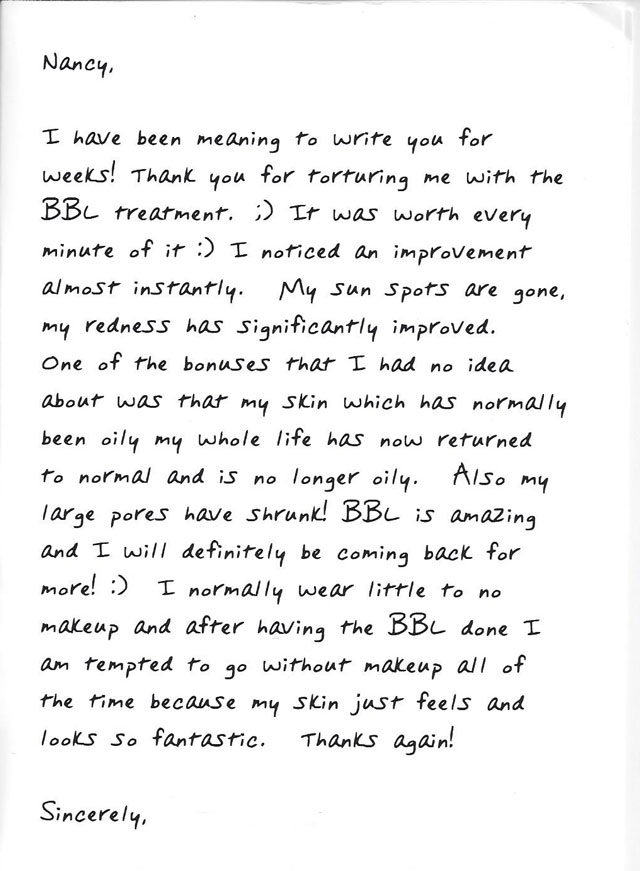 Nancy,
I have been meaning to write you for
weeks! Thank you for torturing me with the
BBL treatment. ;) It was worth every
minute of it :) I noticed an improvement
almost instantly. My sun spots are gone,
my redness has significantly improved.
One of the bonuses that I had no idea
about was that my skin which has normally
been oily my whole life has now returned
to normal and is no longer oily. Also my
large pores have shrunk! BBL is amazing
and I will definitely be coming back for
more! :) I normally wear little to no
makeup and after having the BBL done I
am tempted to go without makeup all of
the time because my skin just feels and
looks so fantastic. Thanks again!
Sincerely,